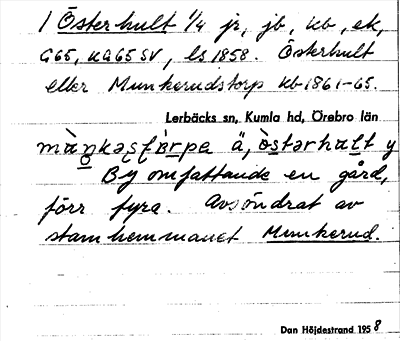 1 Österhult 1/4 jr, jb, kb, ek,
G65, KG65 SV, ls 1858. Österhult
eller Munkerudstorp kb 1861-65.
Lerbäcks sn, Kumla hd, Örebro län
ä,
By omfattande en gård,
förr fyra. Avsöndrat av
stamhemmanet Munkerud.
Dan Höjdestrand 1958